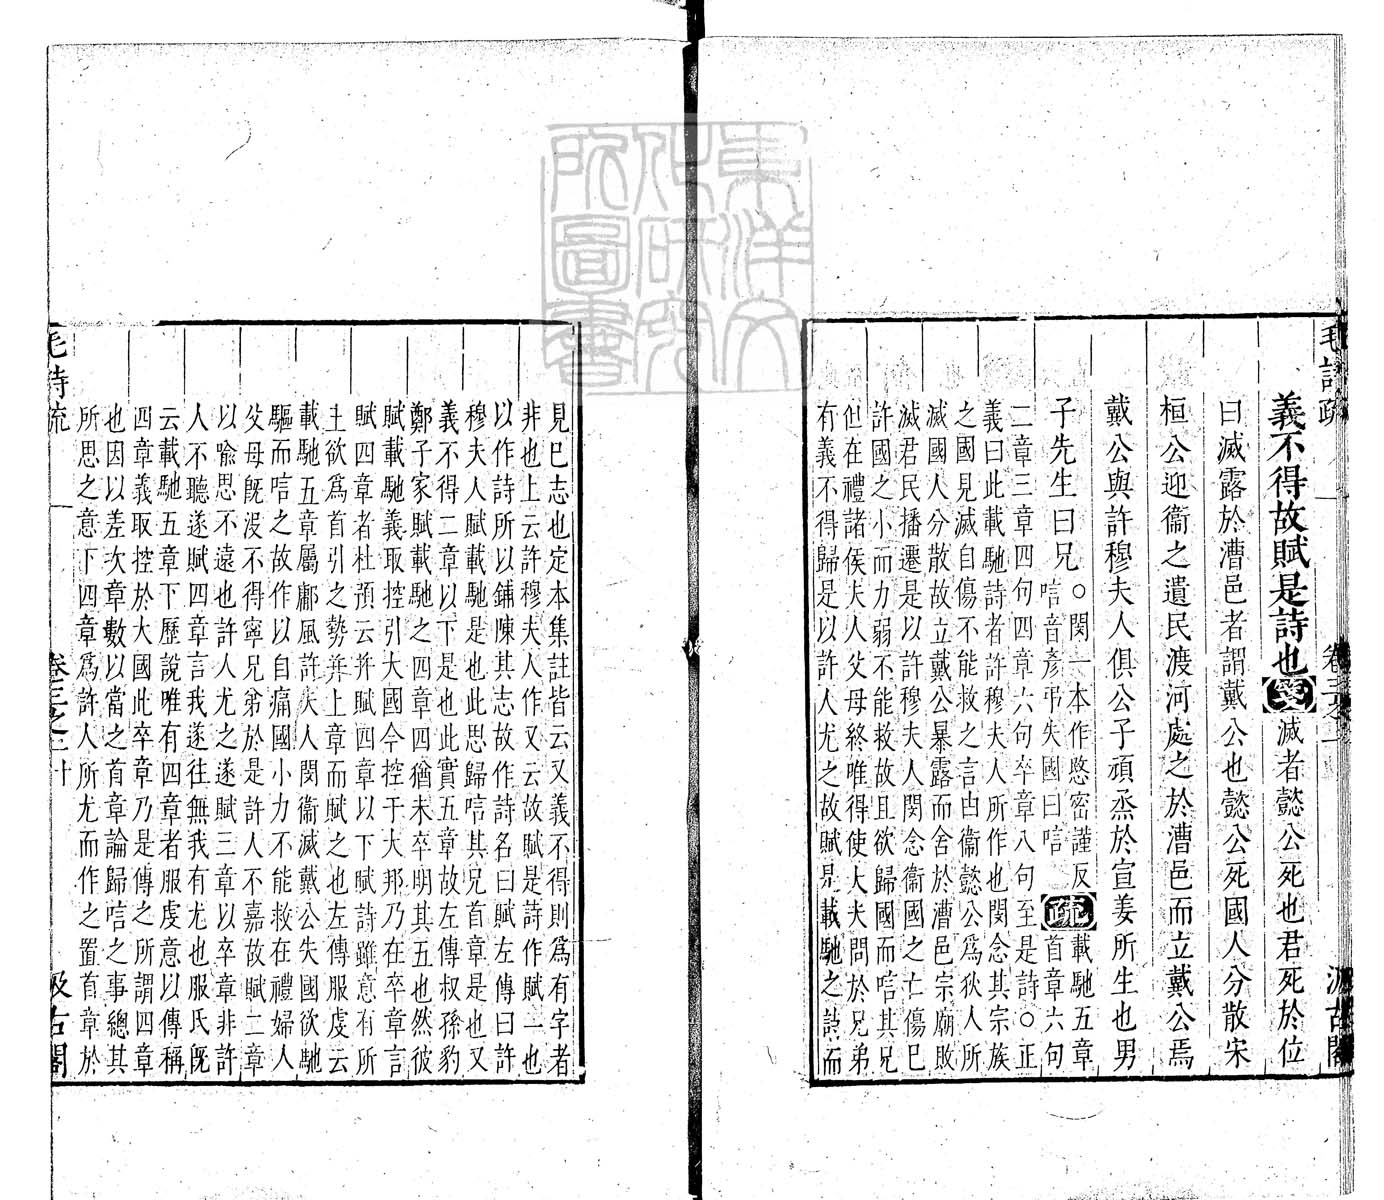 毛詩疏 卷三之二 汲古閣
義不得故賦是詩也箋滅者懿公死也君死於位
曰滅露於漕邑者謂戴公也懿公死國人分散宋
桓公迎衞之遺民渡河處之於漕邑而立戴公焉
戴公與許穆夫人俱公子頑烝於宣姜所生也男
子先生曰兄
○閔一本作愍密謹反
唁音彥弔失國曰唁
疏
載馳五章
首章六句
二章三章四句四章六句卒章八句至是詩○正
義曰此載馳詩者許穆夫人所作也閔念其宗族
之國見滅自傷不能救之言由衞懿公爲狄人所
滅國人分散故立戴公暴露而舍於漕邑宗廟敗
滅君民播遷是以許穆夫人閔念衞國之亡傷巳
許國之小而力弱不能救故且欲歸國而唁其兄
但在禮諸侯夫人父母終唯得使大夫問於兄弟
有義不得歸是以許人尤之故賦是載馳之詩而
見巳志也定本集註皆云又義不得則爲有字者
非也上云許穆夫人作又云故賦是詩作賦一也
以作詩所以鋪陳其志故作詩名曰賦左傳曰許
穆夫人賦載馳是也此思歸唁其兄首章是也又
義不得二章以下是也此實五章故左傳叔孫豹
鄭子家賦載馳之四章四猶未卒明其五也然彼
賦載馳義取控引大國今控于大邦乃在卒章言
賦四章者杜預云并賦四章以下賦詩雖意有所
主欲爲首引之勢并上章而賦之也左傳服虔云
載馳五章屬鄘風許夫人閔衞滅戴公失國欲馳
驅而唁之故作以自痛國小力不能救在禮婦人
父母旣沒不得寧兄弟於是許人不嘉故賦二章
以喻思不遠也許人尤之遂賦三章以卒章非許
人不聽遂賦四章言我遂往無我有尤也服氏旣
云載馳五章下歷說唯有四章者服虔意以傳稱
四章義取控於大國此卒章乃是傳之所謂四章
也因以差次章數以當之首章論歸唁之事總其
所思之意下四章爲許人所尤而作之置首章於
毛詩疏 卷三之二 十 汲古閣
東洋文化研究所圖書